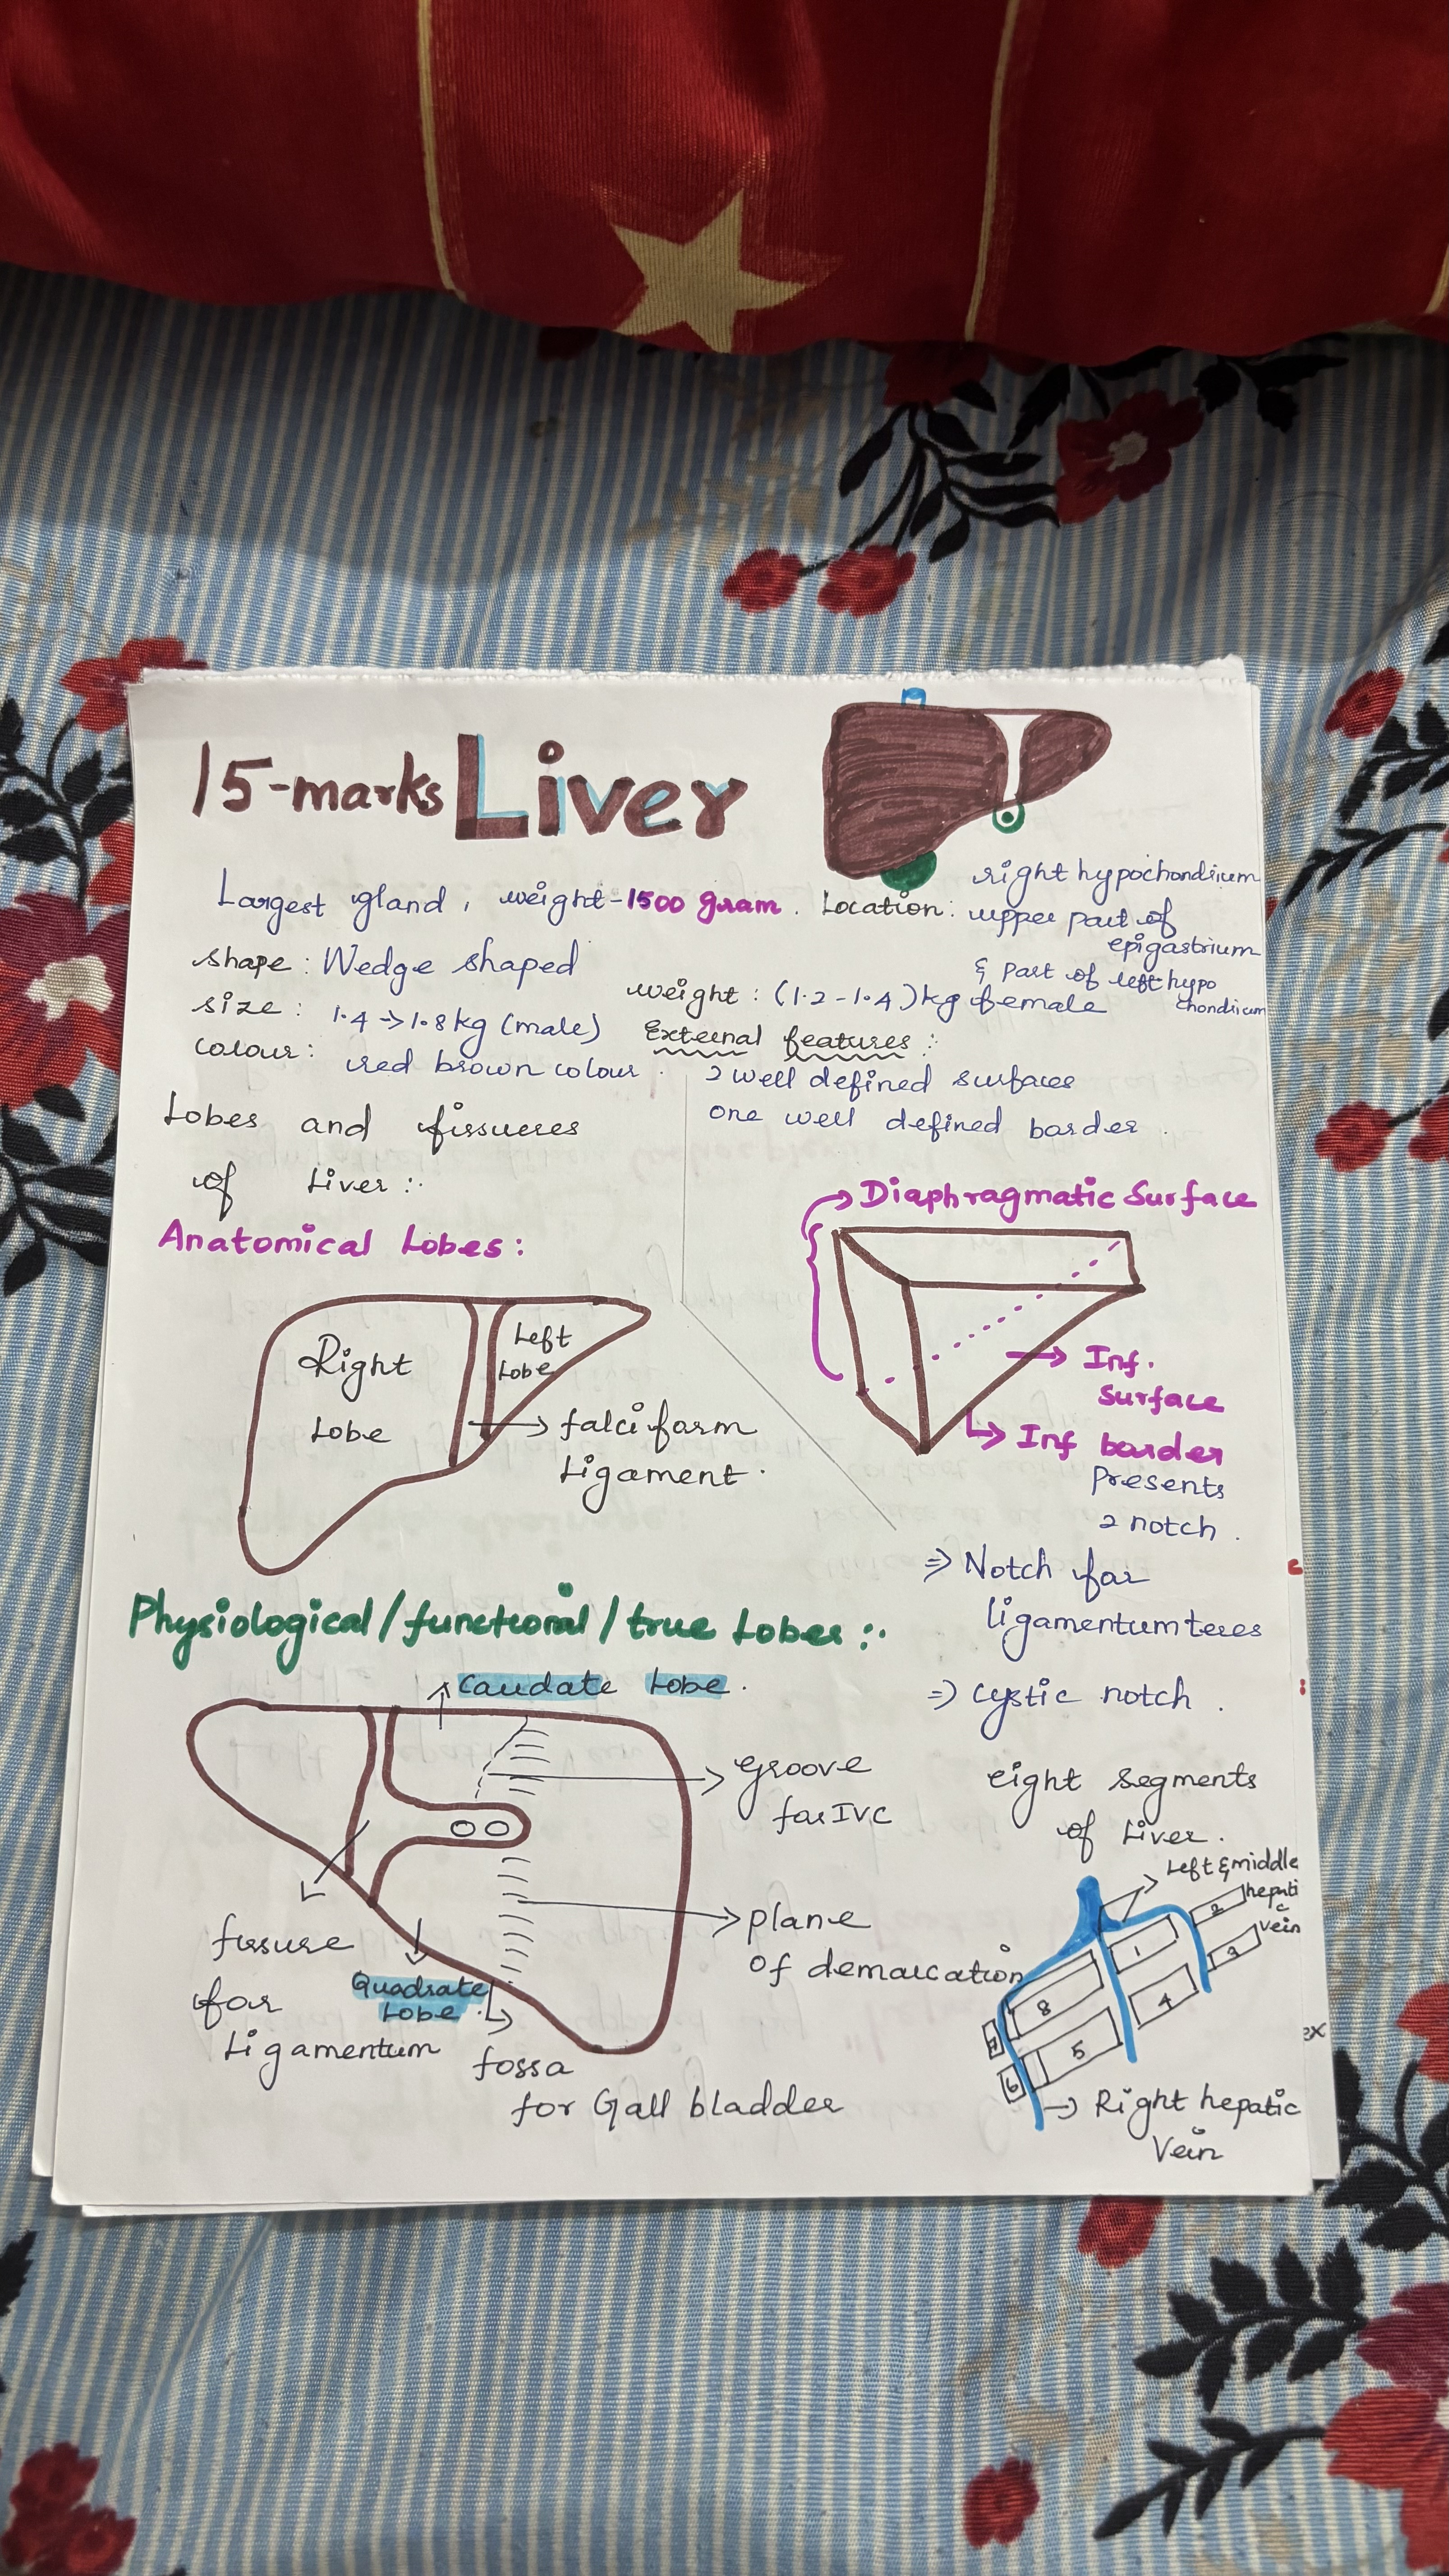 15-marks Liver
Largest gland, weight-1500 gram. Location: right hypochondrium
upper part of
epigastrium
& part of left hypo
chondrium
shape: Wedge shaped
weight: (1.2-1.4)kg female
size: 1.4->1.8kg (male)
colour: red brown colour.
External features:
2 well defined surfaces
one well defined border.
Lobes and fissures
of Liver:
Anatomical Lobes:
Right
Lobe
Left
Lobe
falciform
Ligament.
Diaphragmatic Surface
Inf.
Surface
Inf border
presents
2 notch.
=> Notch for
ligamentum teres
=> cystic notch.
Physiological/functional/true Lobes:
Caudate Lobe.
groove
for IVC
plane
of demarcation
fissure
for
Ligamentum
Quadrate
Lobe.
fossa
for Gall bladder
eight segments
of Liver.
Left & middle
hepati
c
vein
2
1
3
8
4
7
5
6
Right hepatic
Vein
ex